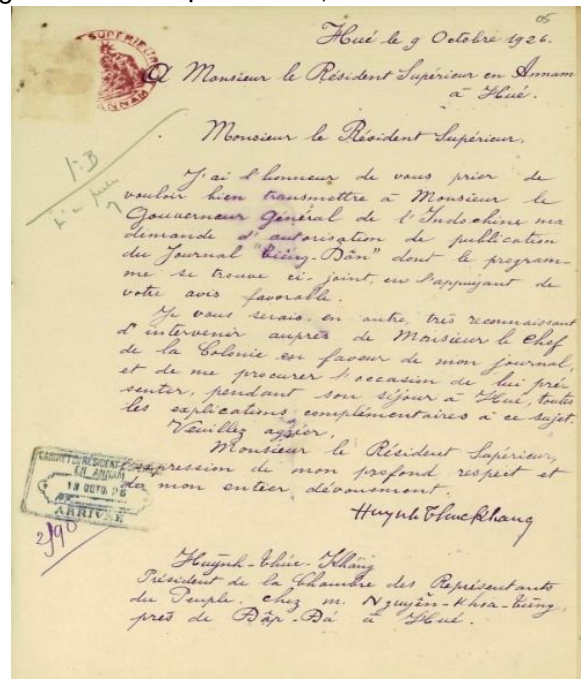 05
Hué le 9 Octobre 1926.
A Monsieur le Résident Supérieur en Annam
à Hué.
Monsieur le Résident Supérieur,
J'ai l'honneur de vous prier de
vouloir bien transmettre à Monsieur le
Gouverneur Général de l'Indochine ma
demande d'autorisation de publication
du Journal "Tiếng-Dân" dont le program-
me se trouve ci-joint, en l'appuyant de
votre avis favorable.
Je vous serais, en outre, très reconnaissant
d'intervenir auprès de Monsieur le Chef
de la Colonie en faveur de mon journal,
et de me procurer l'occasion de lui pré-
senter, pendant son séjour à Hué, toutes
les explications complémentaires à ce sujet.
Veuillez agréer,
Monsieur le Résident Supérieur,
l'expression de mon profond respect et
de mon entier dévouement.
Huynh Thuc Khang
Huỳnh-Thúc-Kháng
Président de la Chambre des Représentants
du Peuple. chez M. Nguyễn-Khoa-Tùng,
près de Đập-Đá à Hué.
SUPÉRIEUR
ANNAM
EN ANNAM
ARRIVÉE